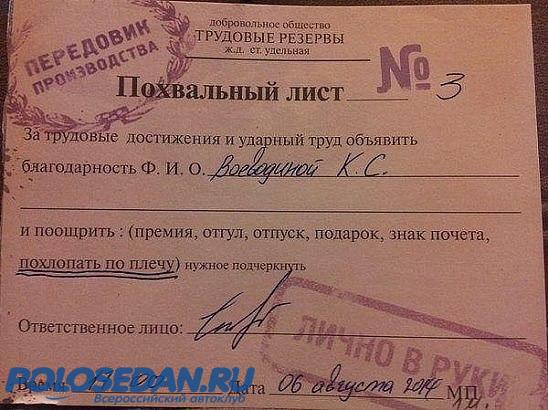 добровольное общество
ТРУДОВЫЕ РЕЗЕРВЫ
ж.д. ст. удельная
ПЕРЕДОВИК
ПРОИЗВОДСТВА
Похвальный лист № 3
За трудовые достижения и ударный труд объявить
благодарность Ф. И. О. Воеводиной К.С.
и поощрить : (премия, отгул, отпуск, подарок, знак почета,
похлопать по плечу) нужное подчеркнуть
Ответственное лицо:
ЛИЧНО В РУКИ
Время Дата 06 августа МП
POLOSEDAN.RU
Всероссийский автоклуб